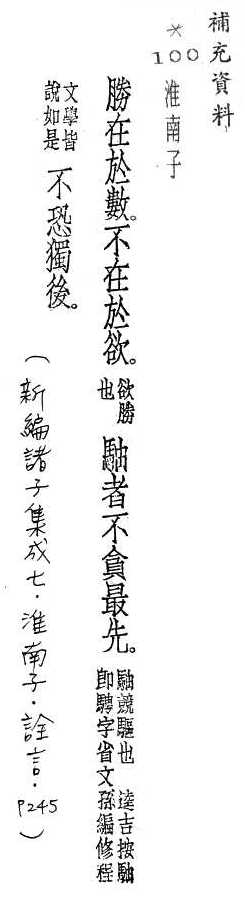 補充資料
* 100 淮南子
勝在於數。不在於欲。欲勝也 駎者不貪最先。駎競驅也 逵吉按駎即騁字省文孫編修程
文學皆說如是 不恐獨後。
(新編諸子集成七·淮南子·詮言·P245)